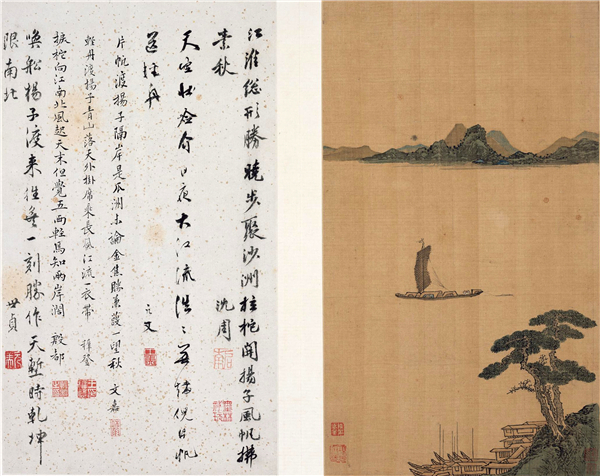 江淮總形勝曉步聚沙洲揚子風帆拂
素秋 沈周
天空日夜大江流浩〻無端倪片帆
送輕舟
片帆渡揚子隔岸是瓜洲未論金焦勝蒹葭一望秋 文嘉
輕舟渡揚子青山落天外掛席乘長風江流一衣帶 穉登
捩柁向江南北風起天末但覺五兩輕焉知兩岸闊 殷都
喚船揚子渡來往無一刻勝作天塹時乾坤
限南北 世貞